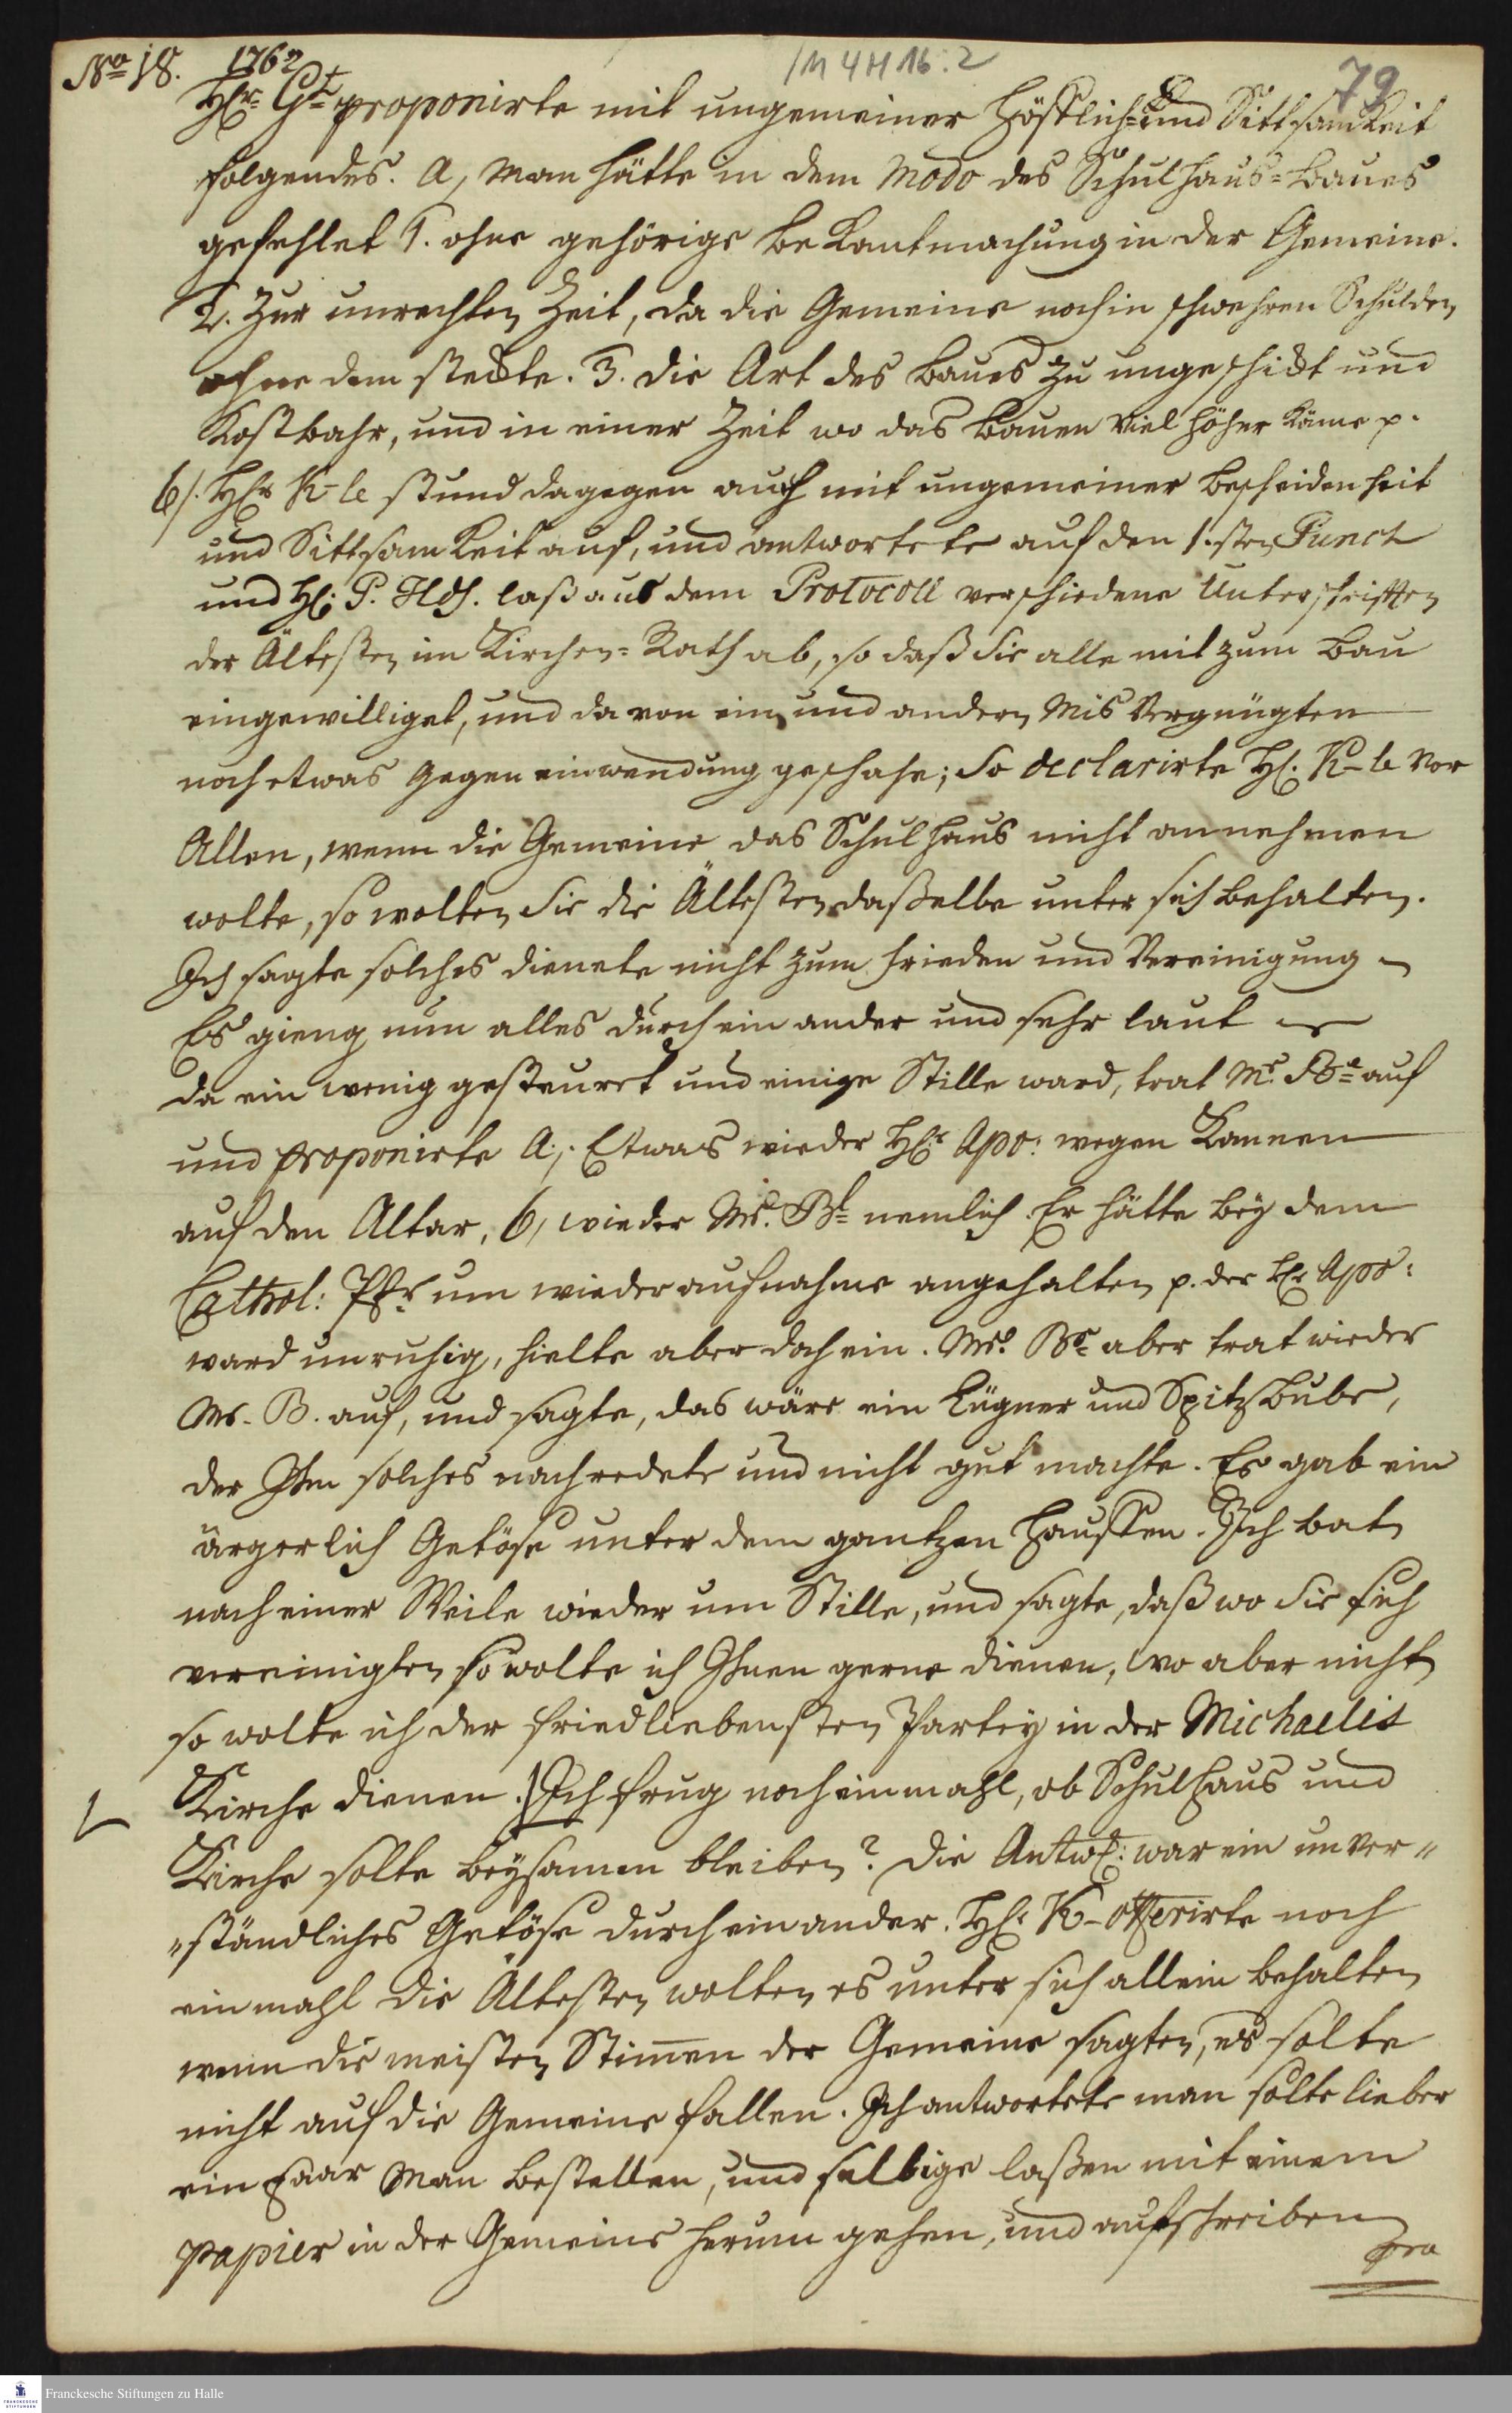 No 18. 1762 1M 4H 16:2 79
Hr. Gt proponirte mit ungemeiner Höfflich- und Sittsamkeit
folgendes. a, Man hätte in dem Modo des Schulhaus-Baues
gefehlet 1. ohne gehörige Bekantmachung in der Gemeine.
2. Zur unrechten Zeit, da die Gemeine noch in schwehren Schulden
ohne dem steckte. 3. die Art des Baues zu ungeschickt und
Kostbahr, und in einer Zeit wo das Bauen viel höher käme p.
b). Hr K-le stund dagegen auch mit ungemeiner Bescheidenheit
und Sittsamkeit auf, und antwortete auf den 1.sten Punct
und H: P. Hds. laß aus dem Protocoll verschiedene Unterschrifften
der Ältesten im Kirchen-Rath ab, so daß Sie alle mit zum Bau
eingewilliget, und da von ein und andern Mis Vergnügten
noch etwas gegen einwendung geschahe; So declarirte H. K-le vor
Allen, wenn die Gemeine das Schulhaus nicht annehmen
wolte, so wolten Sie die Ältesten daßelbe unter sich behalten.
Ich sagte solches dienete nicht zum Frieden und Vereinigung
Es gieng nun alles durch ein ander und sehr laut
da ein wenig gesteuret und einige Stille ward, trat Mr. auf
und proponirte a; Etwas wieder Hr Apo: wegen Kannen
auf den Altar, b, wieder Mr. Bt nemlich Er hätte bey dem
Cathol: Pfr um wiederaufnahme angehalten p. der Hr Apo:
ward unruhig, hielte aber doch ein. Mr. aber trat wieder
Mr. B. auf, und sagte, das wäre ein Lügner und Spitzbube,
der Ihm solches nachredete und nicht gut machte. Es gab ein
ärgerlich Getöse unter dem gantzen Hauffen. Ich bat
nach einer Weile wieder um Stille, und sagte, daß wo Sie sich
vereinigten so wolte ich Ihnen gerne dienen, wo aber nicht
so wolte ich der friedliebensten Partey in der Michaelis
Kirche dienen. Ich frug noch einmahl, ob Schulhaus und
Kirche solte beysamen bleiben? Die Antw: war ein unver=
=ständliches Getöse durch einander. Hr K- offerirte noch
einmahl die Ältesten wolten es unter sich allein behalten
wenn die meisten Stimen der Gemeine sagten, es solte
nicht auf die Gemeine fallen. Ich antwortete man solte lieber
ein paar Man bestellen, und selbige laßen mit einem
papier in der Gemeine herum gehen, und aufschreiben
pro
Franckesche Stiftungen zu Halle